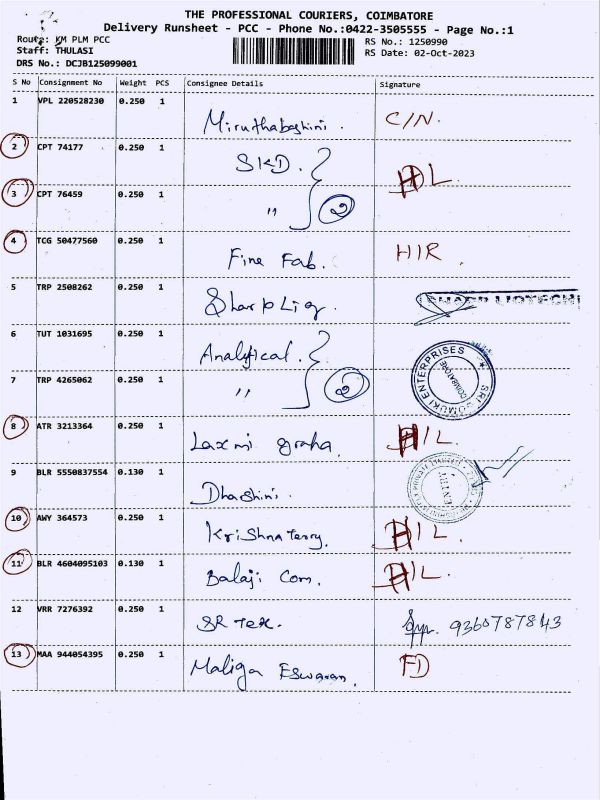 THE PROFESSIONAL COURIERS, COIMBATORE
Delivery Runsheet - PCC - Phone No.:0422-3505555 - Page No.:1
Route: KM PLM PCC
RS No.: 1250990
Staff: THULASI
RS Date: 02-Oct-2023
DRS No.: DCJB125099001
S No Consignment No Weight PCS Consignee Details Signature
1 VPL 220528230 0.250 1 Miruthabashini. C/N.
2 CPT 74177 0.250 1 SKD. HL.
3 CPT 76459 0.250 1 " 2
4 TCG 50477560 0.250 1 Fine Fab. HIR.
5 TRP 2508262 0.250 1 Sharp Liq. SHARP LIQTECH
6 TUT 1031695 0.250 1 Analytical.
7 TRP 4265062 0.250 1 " 2
ENTERPRISES
COIMBATORE
8 ATR 3213364 0.250 1 Laxmi graha. HIL.
9 BLR 5550837554 0.130 1 Dharshini.
PRIVATE
ENTRY
10 AWY 364573 0.250 1 Krishna terry. HIL.
11 BLR 4604095103 0.130 1 Balaji Com. HIL.
12 VRR 7276392 0.250 1 SR Tex. 9360787843
13 MAA 944054395 0.250 1 Maliga Eswaran. FD